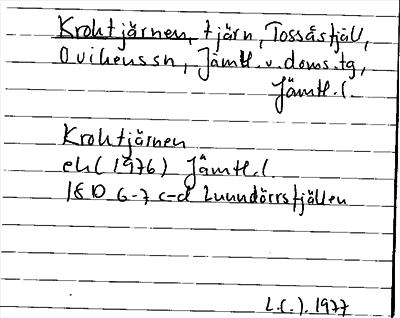 Kroktjärnen, tjärn, Tossåsfjäll,
Ovikens sn, Jämtl. v. doms. tg,
Jämtl. l.
Kroktjärnen
ek (1976) Jämtl. l
18D 6-7 c-d Lunndörrsfjällen
L.(.). 1977